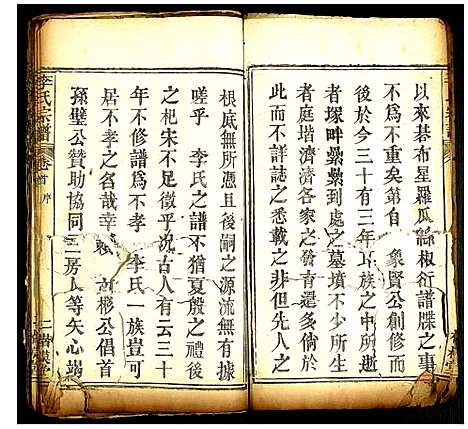 以來碁布星羅瓜緜椒衍譜牒之事
不爲不重矣第自 象賢公創修而
後於今三十有三年 族之中所逝
者塚畔纍纍到處之墓墳不少所生
者庭堦濟濟各家之發育還多倘於
此而不詳誌之悉載之非但先人之
根底無所憑且後嗣之源流無有據
嗟乎 李氏之譜不猶夏殷之禮後
之杞宋不足徵乎况古人有云三十
年不修譜爲不孝 李氏一族豈可
居不孝之名哉幸 彬公倡首
孫璧公贊助協同三房人等矢心端
李氏宗譜
卷首 序